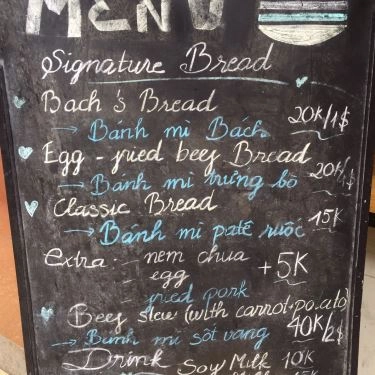 MENU
Signature Bread
Bach's Bread 20K/1$
→ Bánh mì Bách
Egg - fried beef Bread 20K/1$
→ Bánh mì trứng bò
Classic Bread 15K
→ Bánh mì patê ruốc
extra: - nem chua
- egg +5K
fried pork
Beef stew (with carrot+po.ato)
→ Bánh mì sốt vang 40K/2$
Drink Soy Milk 10K